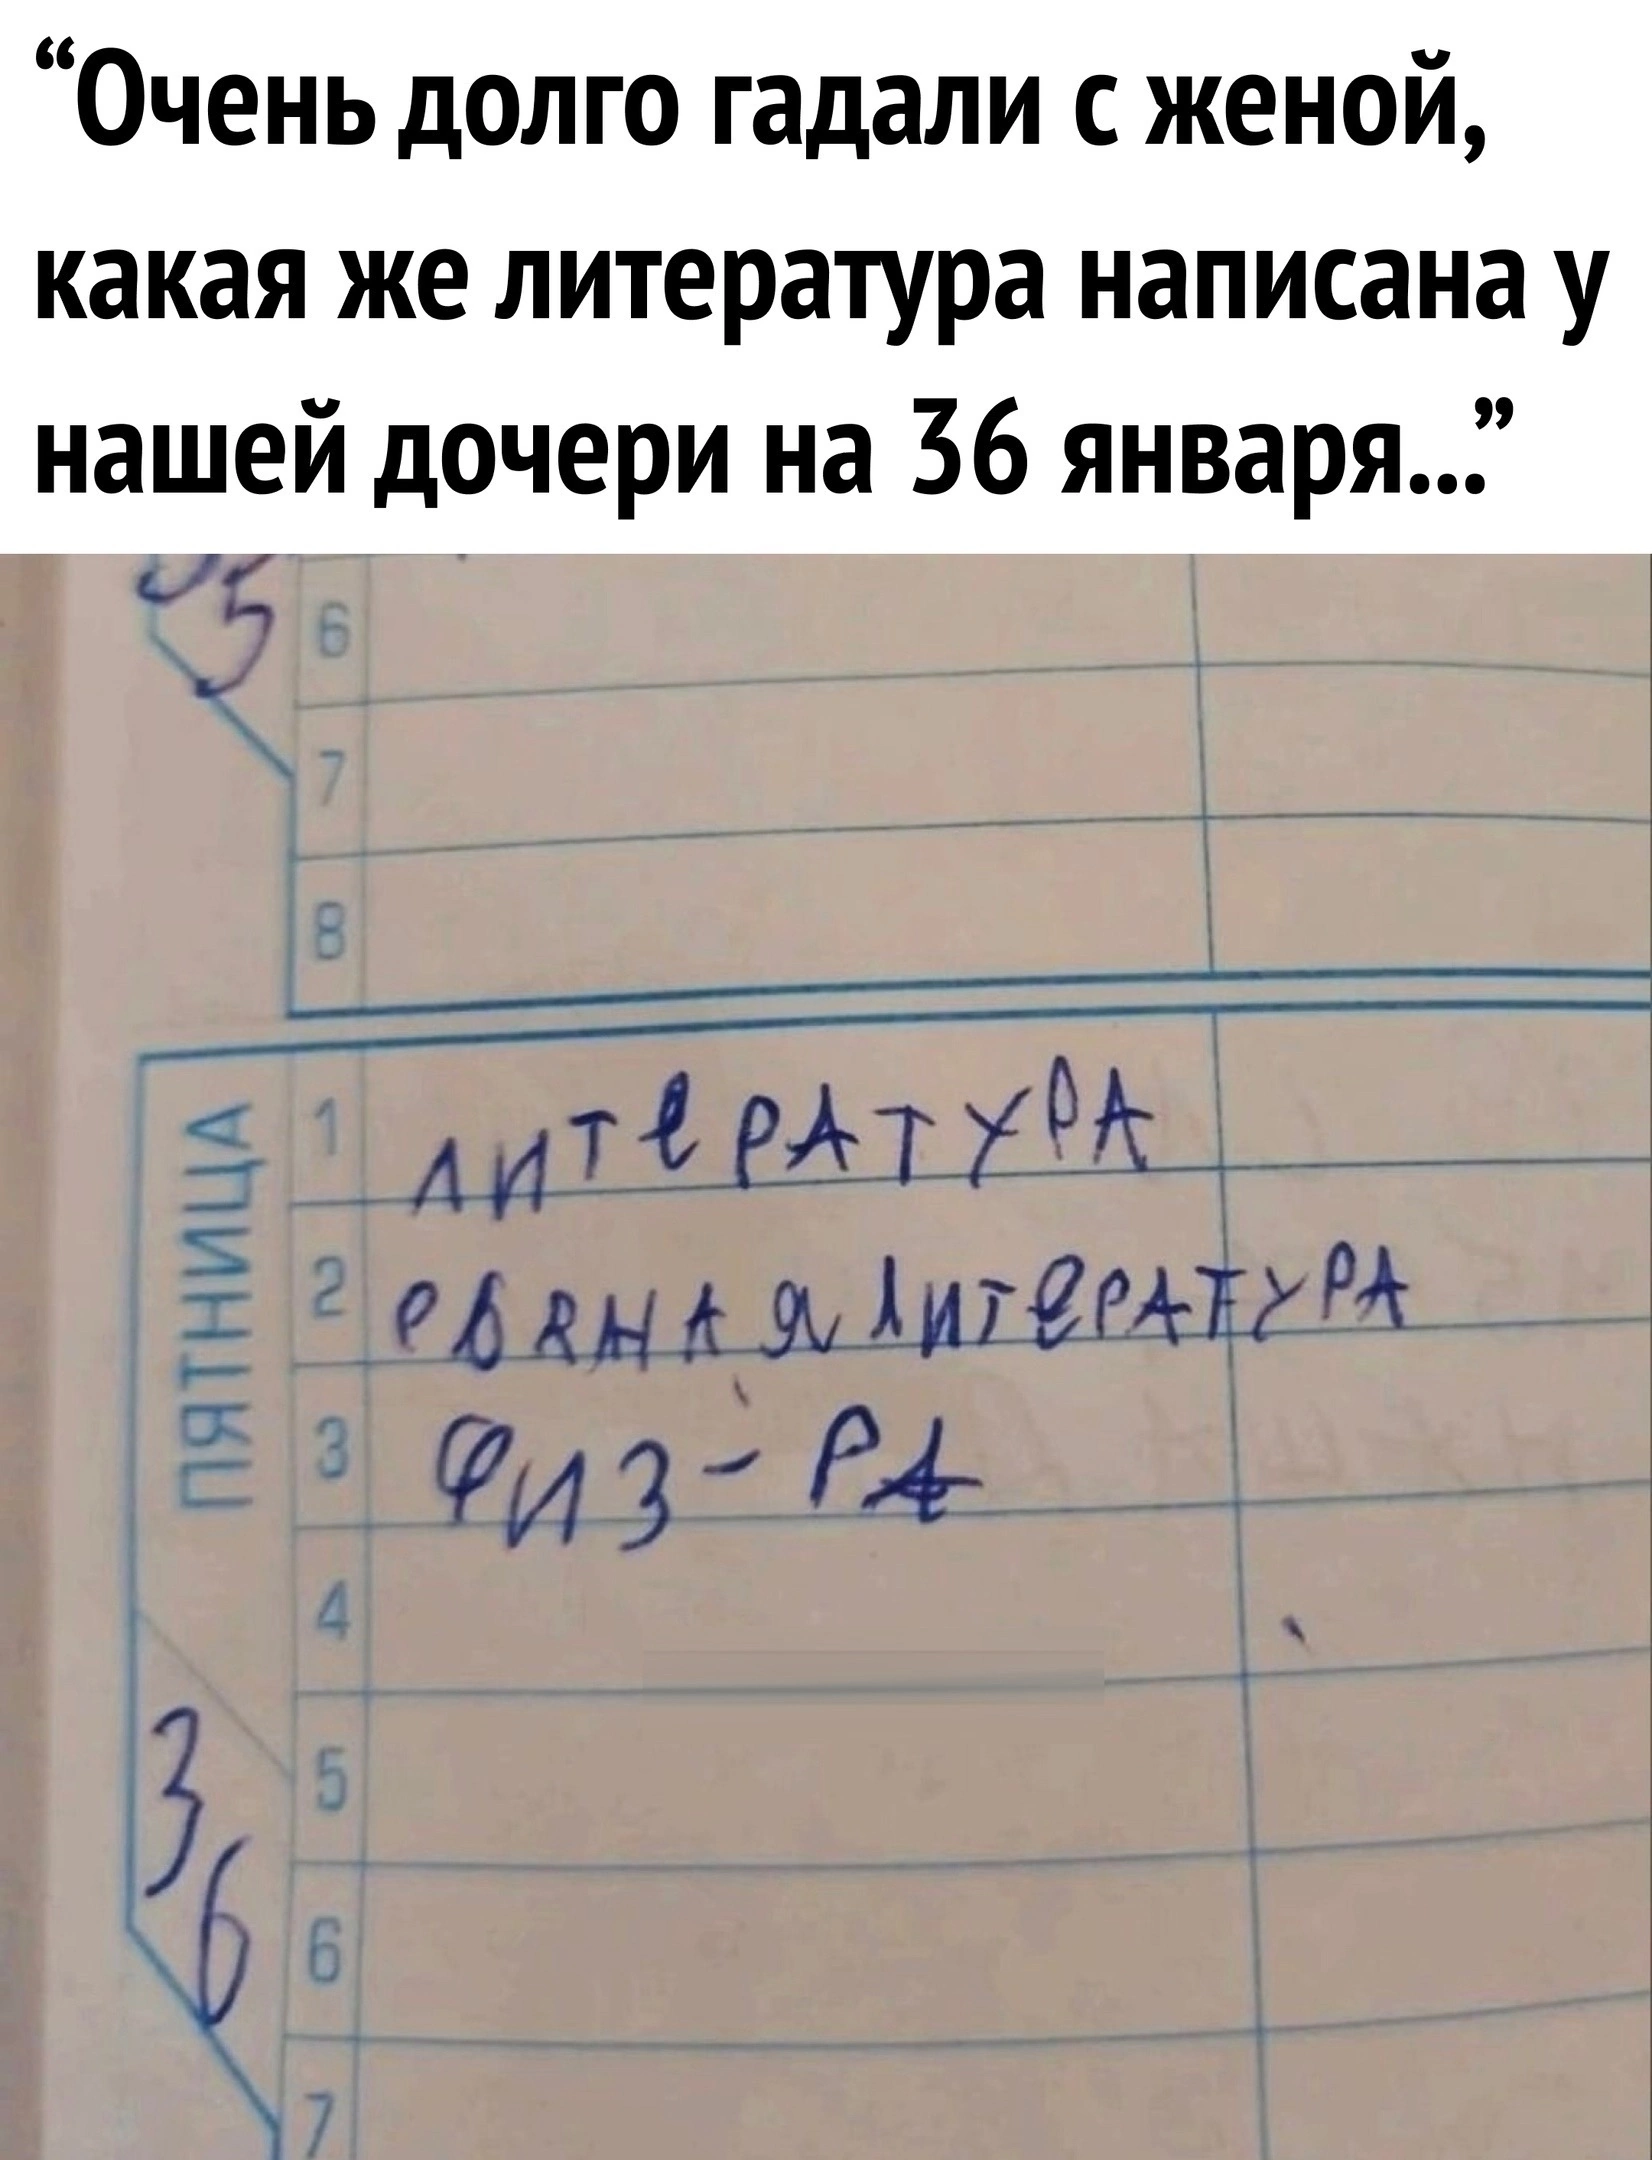 “Очень долго гадали с женой,
какая же литература написана у
нашей дочери на 36 января...”
5
6
7
8
ПЯТНИЦА
1 ЛИТЕРАТУРА
2 ЛИТЕРАТУРА
3 ФИЗ-РА
4
5
6
7
36